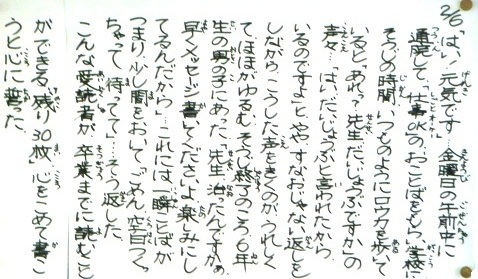 2/6
「はい！元気です…」金曜日の午前中に
通院して、「仕事OK」のおことばをもらい学校に
そうじの時間、いつものようにロウカを歩いて
いると「あれ？先生だいじょうぶですか」の
声々…「はい、だいじょうぶと言われたから、
いるのですよ」と、ややすなおじゃない返しを
しながら、こうした声をきくのが、うれしく
て、ほほがゆるむ。そうじ終了のころ、6年
生の男の子にあった。「先生治ったんですか。
早くメッセージ書いてくださいよ。楽しみにし
てるんだから」…これには、一瞬ことばが
つまり、少し間をおいて「ごめん、空白つくっ
ちゃって、待ってて」…そう返した。
こんな愛読者が、卒業までに読むこと
ができる「残り30枚」、心をこめて書こ
うと心に誓った。